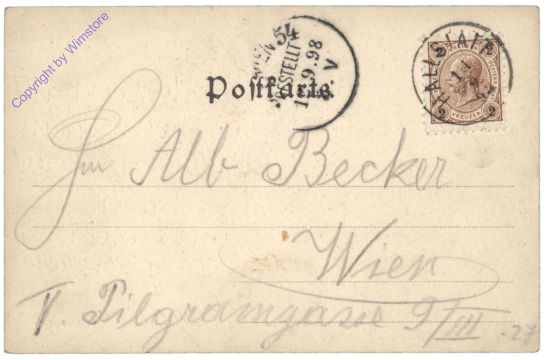 Copyright by Wimstore
Postkarte
WIEN 5/1
BESTELLT
9.98
V
HALLSTATT
2 KREUZER 2
Alb Becker
Wien
V. Pilgramgasse 9/III
27